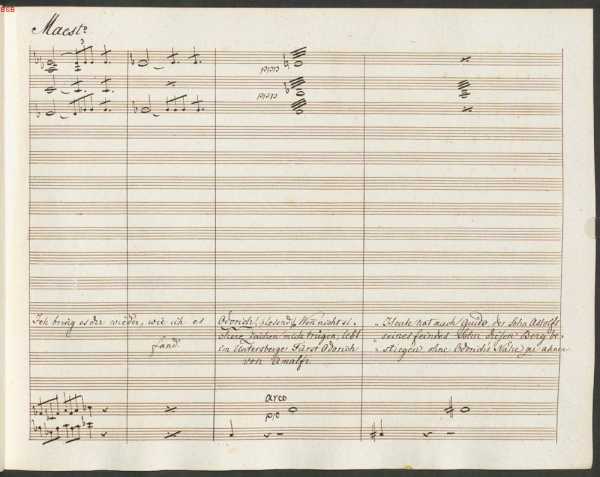 Maest:
3
piano
piano
Ich bring es dir wieder, wie ich es
fand.
Odorich (:lesend:) Wenn nicht si-
chere Zeichen mich trügen, lebt
im Untersberge Fürst Odorich
von Amalfi.
Heute hat auch Guido der Sohn Astolfs
seines Feindes Sohn diesen Berg be-
stiegen ohne Odorichs Nähe zu ahnen
arco